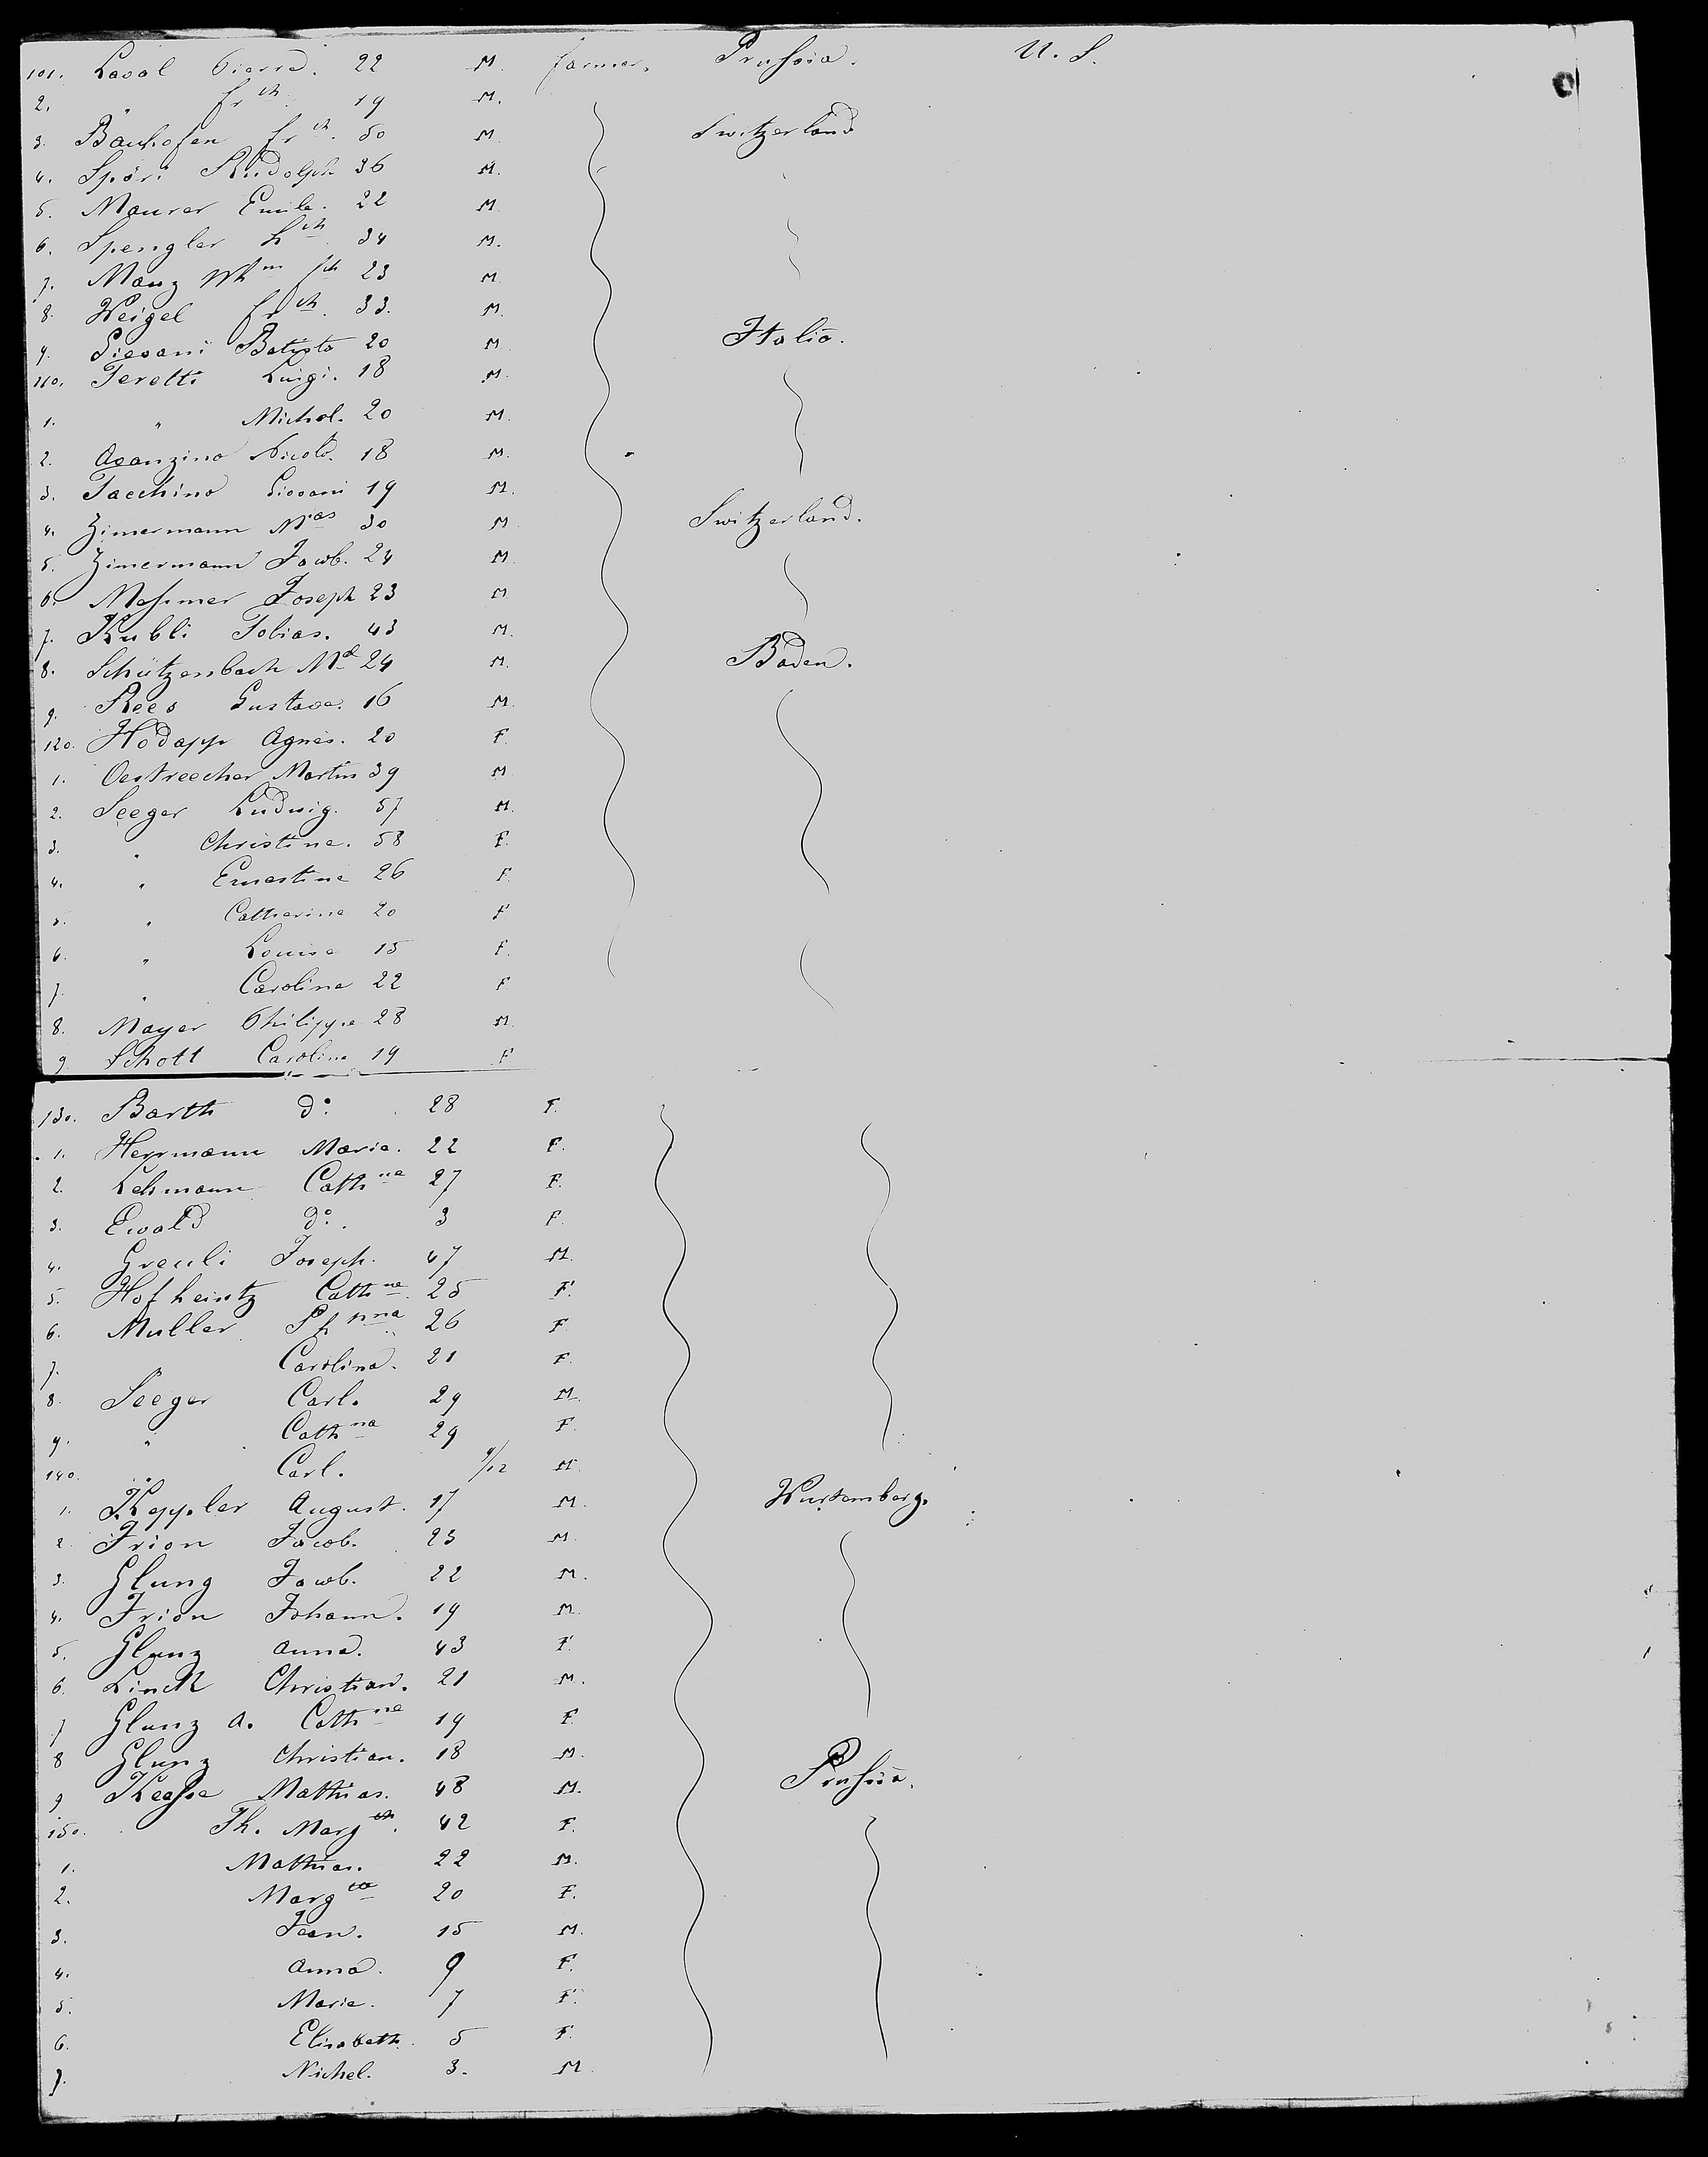 101. Laval Pierre. 22 M. farmer. Prussia. U. S.
2. " Frch. 19 M.
3. Bauhofen Frch. 50 M. Switzerland
4. Spöri Rudolph 36 M.
5. Maurer Emile. 22 M
6. Spengler Hch 34 M.
7. Manz Whm 23 M
8. Weigel Frch. 33. M.
9. Giovani Batista 20 M. Italia.
110. Feretti Luigi. 18 M.
1. " Michol. 20 M.
2. Avanzino Nicolo. 18 M.
3. Tacchino Giovani 19 M.
4. Zimermann Nas 30 M Switzerland.
5. Zimermann Jacob. 24 M.
6. Messmer Joseph 23 M
7. Kubli Tobias. 43 M.
8. Schützenbach Md 24 M. Baden.
9. Rees Gustave. 16 M.
120. Hodapp Agnes. 20 F.
1. Oestreecher Martin 39 M
2. Seeger Ludwig. 57 M.
3. " Christine. 58 F.
4. " Ernestine 26 F
5. " Catherine 20 F
6. " Louise 15 F.
7. " Caroline 22 F
8. Mayer Philippe 28 M.
9. Schott Caroline 19 F
130. Barth do. 28 F.
1. Herrmann Marie. 22 F.
2. Lehmann Cathne 27 F.
3. Ewald do. 3 F.
4. Greuli Joseph. 47 M.
5. Hofheintz Cathne. 25 F.
6. Muller Phnne 26 F
7. " Carolina. 21 F.
8. Seeger Carl. 29 M.
9. " Cathna 29 F.
140. " Carl. 9/12 M
1. Keppler August. 17 M. Wurtemberg.
2. Irion Jacob. 23 M.
3. Glung Jacob. 22 M.
4. Irion Johann. 19 M.
5. Glunz Anna. 43 F.
6. Linck Christian. 21 M.
7 Glunz A. Cathne 19 F.
8 Glunz Christian. 18 M.
9 Keasse Mathias. 48 M. Prussia.
150. Th. Margth. 42 F.
1. Mathias. 22 M.
2. Margta 20 F.
3. Jean. 15 M.
4. Anna. 9 F.
5. Marie. 7 F.
6. Elisabeth. 5 F.
7. Nichel. 3. M